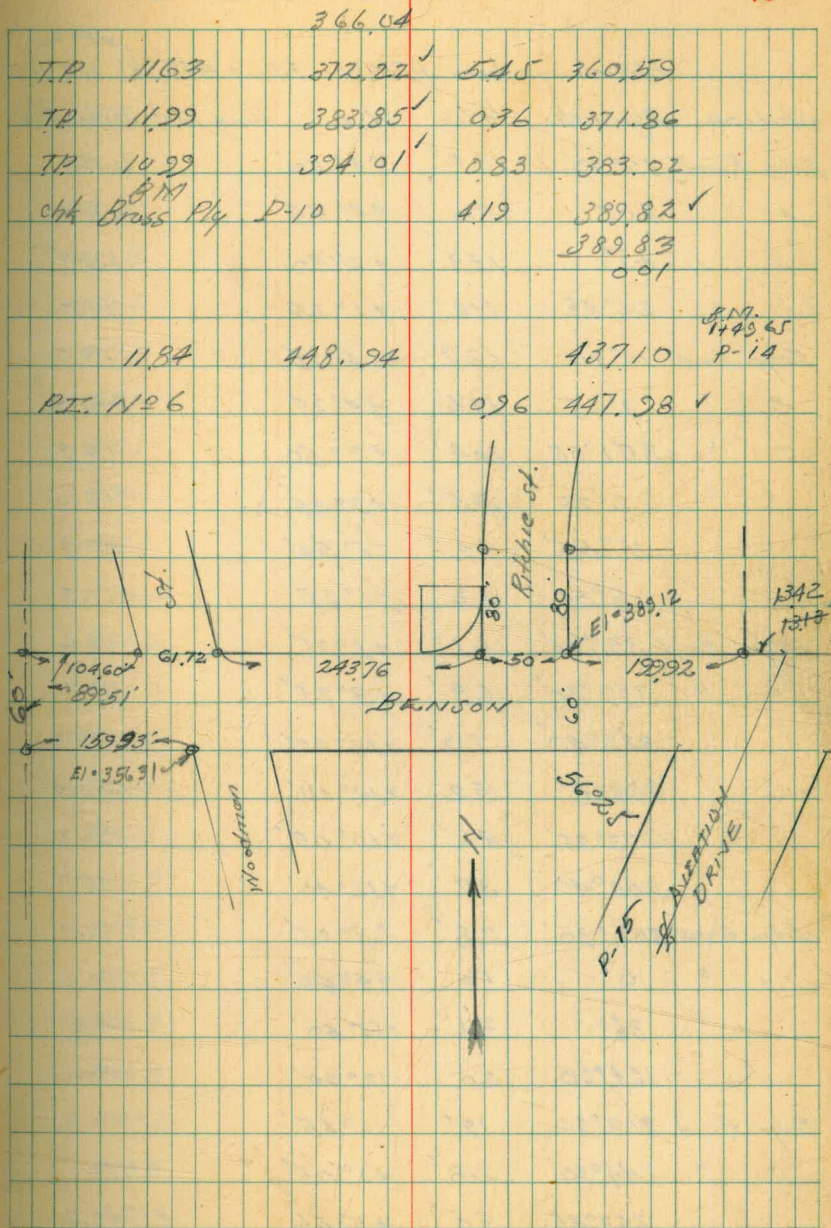 366.04
T.P. 11.63 372.22 ✓ 5.45 360.59
T.P. 11.99 383.85 ✓ 0.36 371.86
T.P. 10.99 394.01 ✓ 0.83 383.02
BM
chk Brass Plg D-10 4.19 389.82 ✓
389.83
0.01
B.M.
1+49.65
11.84 448.94 437.10 P-14
P.I. Nº 6 0.96 447.98 ✓
Ritchie St.
St.
80' 80'
El = 389.12
13.42
13.13
104.60' 61.72' 243.76 50' 199.92
89°51'
60'
BENSON
60'
159.93'
El = 356.31
56°25'
Woodman
N
AVIATION
DRIVE
P-15